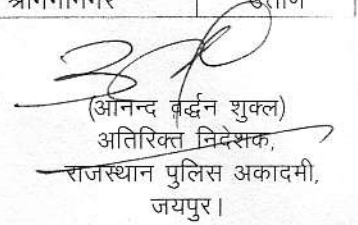 श्रीगंगानगर
(आनन्द वर्द्धन शुक्ल)
अतिरिक्त निदेशक,
राजस्थान पुलिस अकादमी,
जयपुर।